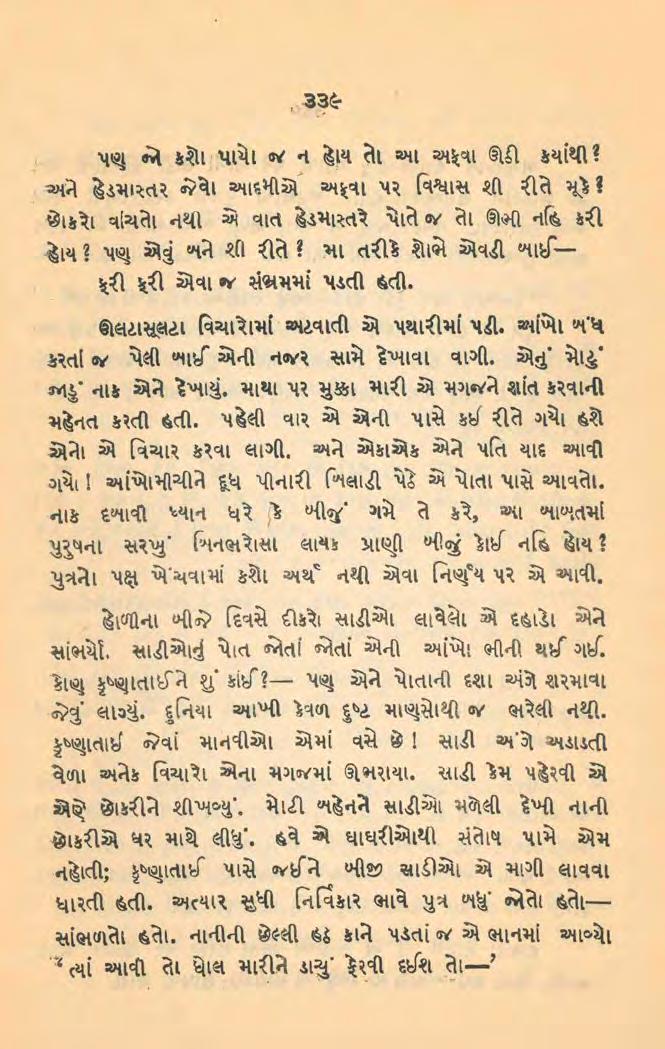 ૩૩૯
પણ જો કશો પાયો જ ન હોય તો આ અફવા ઊડી કયાંથી?
અને હેડમાસ્તર જેવો આદમીએ અફવા પર વિશ્વાસ શી રીતે મૂકે?
છોકરો વાંચતો નથી એ વાત હેડમાસ્તરે પોતે જ તો ઊભી નહિ કરી
હોય? પણ એવું બને શી રીતે? મા તરીકે શોભે એવડી બાઈ—
ફરી ફરી એવા જ સંભ્રમમાં પડતી હતી.
ઊલટાસૂલટા વિચારોમાં અટવાતી એ પથારીમાં પડી. આંખો બંધ
કરતાં જ પેલી બાઈ એની નજર સામે દેખાવા વાગી. એનું મોટું
જાડું નાક એને દેખાયું. માથા પર મુક્કા મારી એ મગજને શાંત કરવાની
મહેનત કરતી હતી. પહેલી વાર એ એની પાસે કઈ રીતે ગયો હશે
એનો એ વિચાર કરવા લાગી. અને એકાએક એને પતિ યાદ આવી
ગયો! આંખોમીચીને દૂધ પીનારી બિલાડી પેઠે એ પોતા પાસે આવતો.
નાક દબાવી ધ્યાન ધરે કે બીજું ગમે તે કરે, આ બાબતમાં
પુરુષના સરખું બિનભરોસા લાયક પ્રાણી બીજું કોઈ નહિ હોય?
પુત્રનો પક્ષ ખેંચવામાં કશો અર્થ નથી એવા નિર્ણય પર એ આવી.
હોળીના બીજે દિવસે દીકરો સાડીઓ લાવેલો એ દહાડો એને
સાંભર્યો. સાડીઓનું પોત જોતાં જોતાં એની આંખો ભીની થઈ ગઈ.
કોણ કૃષ્ણાતાઈને શું કાંઈ?— પણ એને પોતાની દશા અંગે શરમાવા
જેવું લાગ્યું. દુનિયા આખી કેવળ દુષ્ટ માણસોથી જ ભરેલી નથી.
કૃષ્ણાતાઈ જેવાં માનવીઓ એમાં વસે છે! સાડી અંગે અડાડતી
વેળા અનેક વિચારો એના મગજમાં ઊભરાયા. સાડી કેમ પહેરવી એ
એણે છોકરીને શીખવ્યું. મોટી બહેનને સાડીઓ મળેલી દેખી નાની
છોકરીએ ઘર માથે લીધું. હવે એ ઘાઘરીઓથી સંતોષ પામે એમ
નહોતી; કૃષ્ણાતાઈ પાસે જઈને બીજી સાડીઓ એ માગી લાવવા
ધારતી હતી. અત્યાર સુધી નિર્વિકાર ભાવે પુત્ર બધું જોતો હતો—
સાંભળતો હતો. નાનીની છેલ્લી હઠ કાને પડતાં જ એ ભાનમાં આવ્યો
‘ ત્યાં આવી તો ધોલ મારીને ડાચું ફેરવી દઈશ તો—’